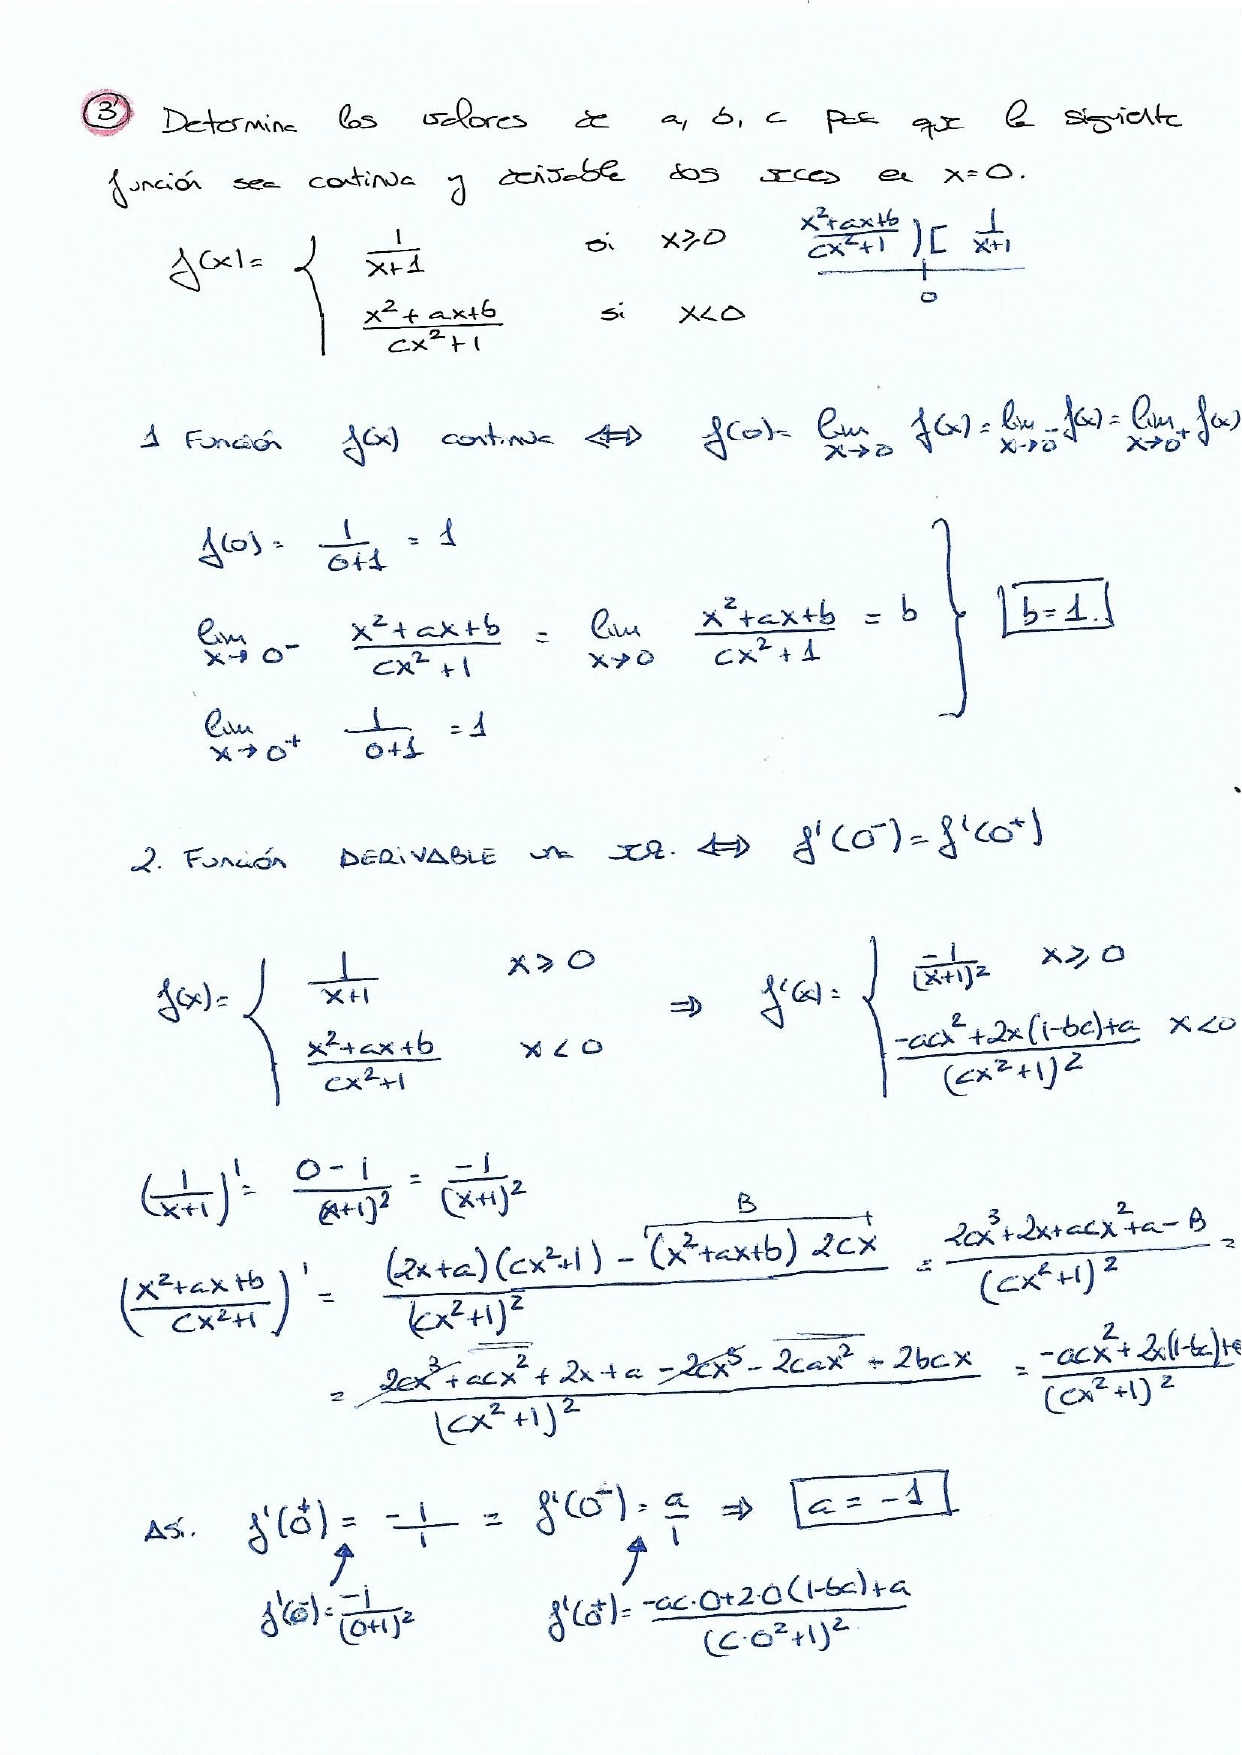 3 Determina los valores de a, b, c para que la siguiente
función sea continua y derivable dos veces en x=0.
f(x) = { 1/(x+1) si x≥0
(x²+ax+b)/(cx²+1) si x<0
(x²+ax+b)/(cx²+1) )[ 1/(x+1)
0
1 Función f(x) continua ⇔ f(0)= lim x→0 f(x) = lim x→0⁻ f(x) = lim x→0⁺ f(x)
f(0) = 1/(0+1) = 1
lim x→0⁻ (x²+ax+b)/(cx²+1) = lim x→0 (x²+ax+b)/(cx²+1) = b } b=1.
lim x→0⁺ 1/(0+1) = 1
2. Función DERIVABLE una vez. ⇔ f'(0⁻)=f'(0⁺)
f(x) = { 1/(x+1) x≥0 ⇒ f'(x) = { -1/(x+1)² x≥0
(x²+ax+b)/(cx²+1) x<0 (-acx²+2x(1-bc)+a)/(cx²+1)² x<0
(1/(x+1))' = (0-1)/(x+1)² = -1/(x+1)²
B
((x²+ax+b)/(cx²+1))' = ((2x+a)(cx²+1) - (x²+ax+b) 2cx)/(cx²+1)² = (2cx³+2x+acx²+a-B)/(cx²+1)² =
= (2cx³+acx²+2x+a-2cx³-2cax²-2bcx)/(cx²+1)² = (-acx²+2x(1-bc)+a)/(cx²+1)²
Así. f'(0⁺) = -1/1 = f'(0⁻) = a/1 ⇒ a = -1
f'(0⁻) = -1/(0+1)² f'(0⁺) = (-ac·0+2·0(1-bc)+a)/(c·0²+1)²